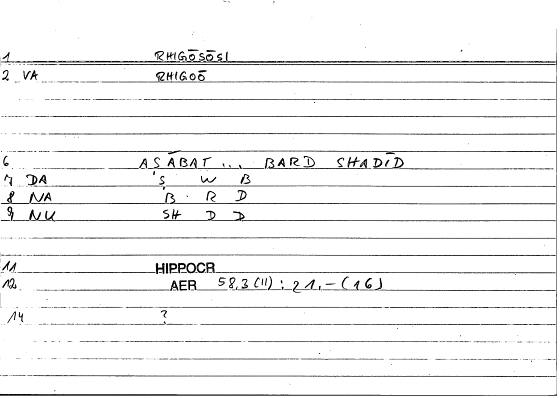 1 RHIGŌSŌSI
2 VA RHIGOŌ
6 ASĀBAT ... BARD SHADĪD
7 DA 'S W B
8 NA B R D
9 NU SH D D
11 HIPPOCR
12 AER 58,3 (11) : 21,-(16)
14 ?